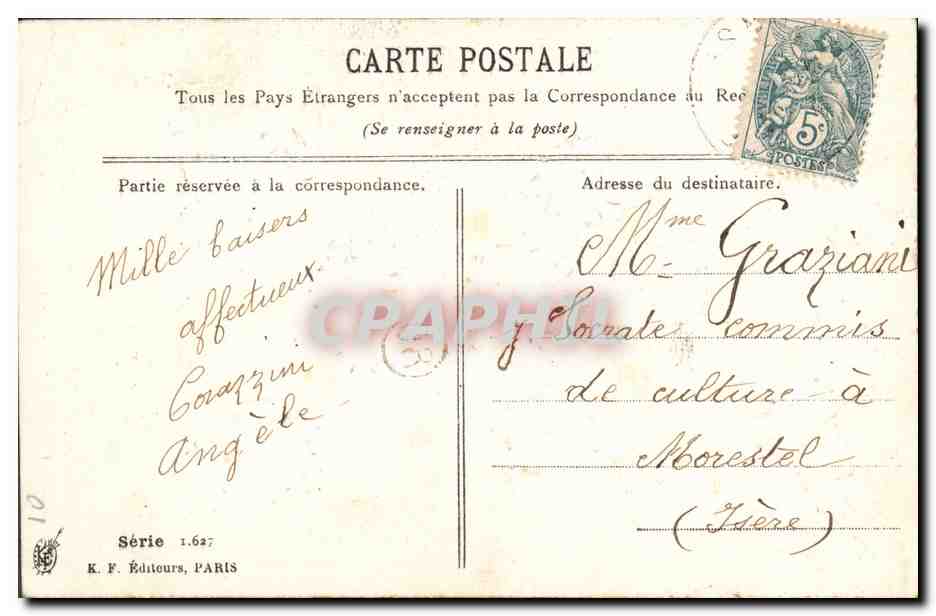 CARTE POSTALE
Tous les Pays Étrangers n'acceptent pas la Correspondance au Rec
(Se renseigner à la poste)
5c
POSTES
Partie réservée à la correspondance.
Mille baisers
affectueux
Corazzini
Angèle
Adresse du destinataire.
Mme Graziani
Socrate commis
de culture à
Morestel
(Isère)
CPAPHIL
10
Série 1.627
K. F. Éditeurs, PARIS